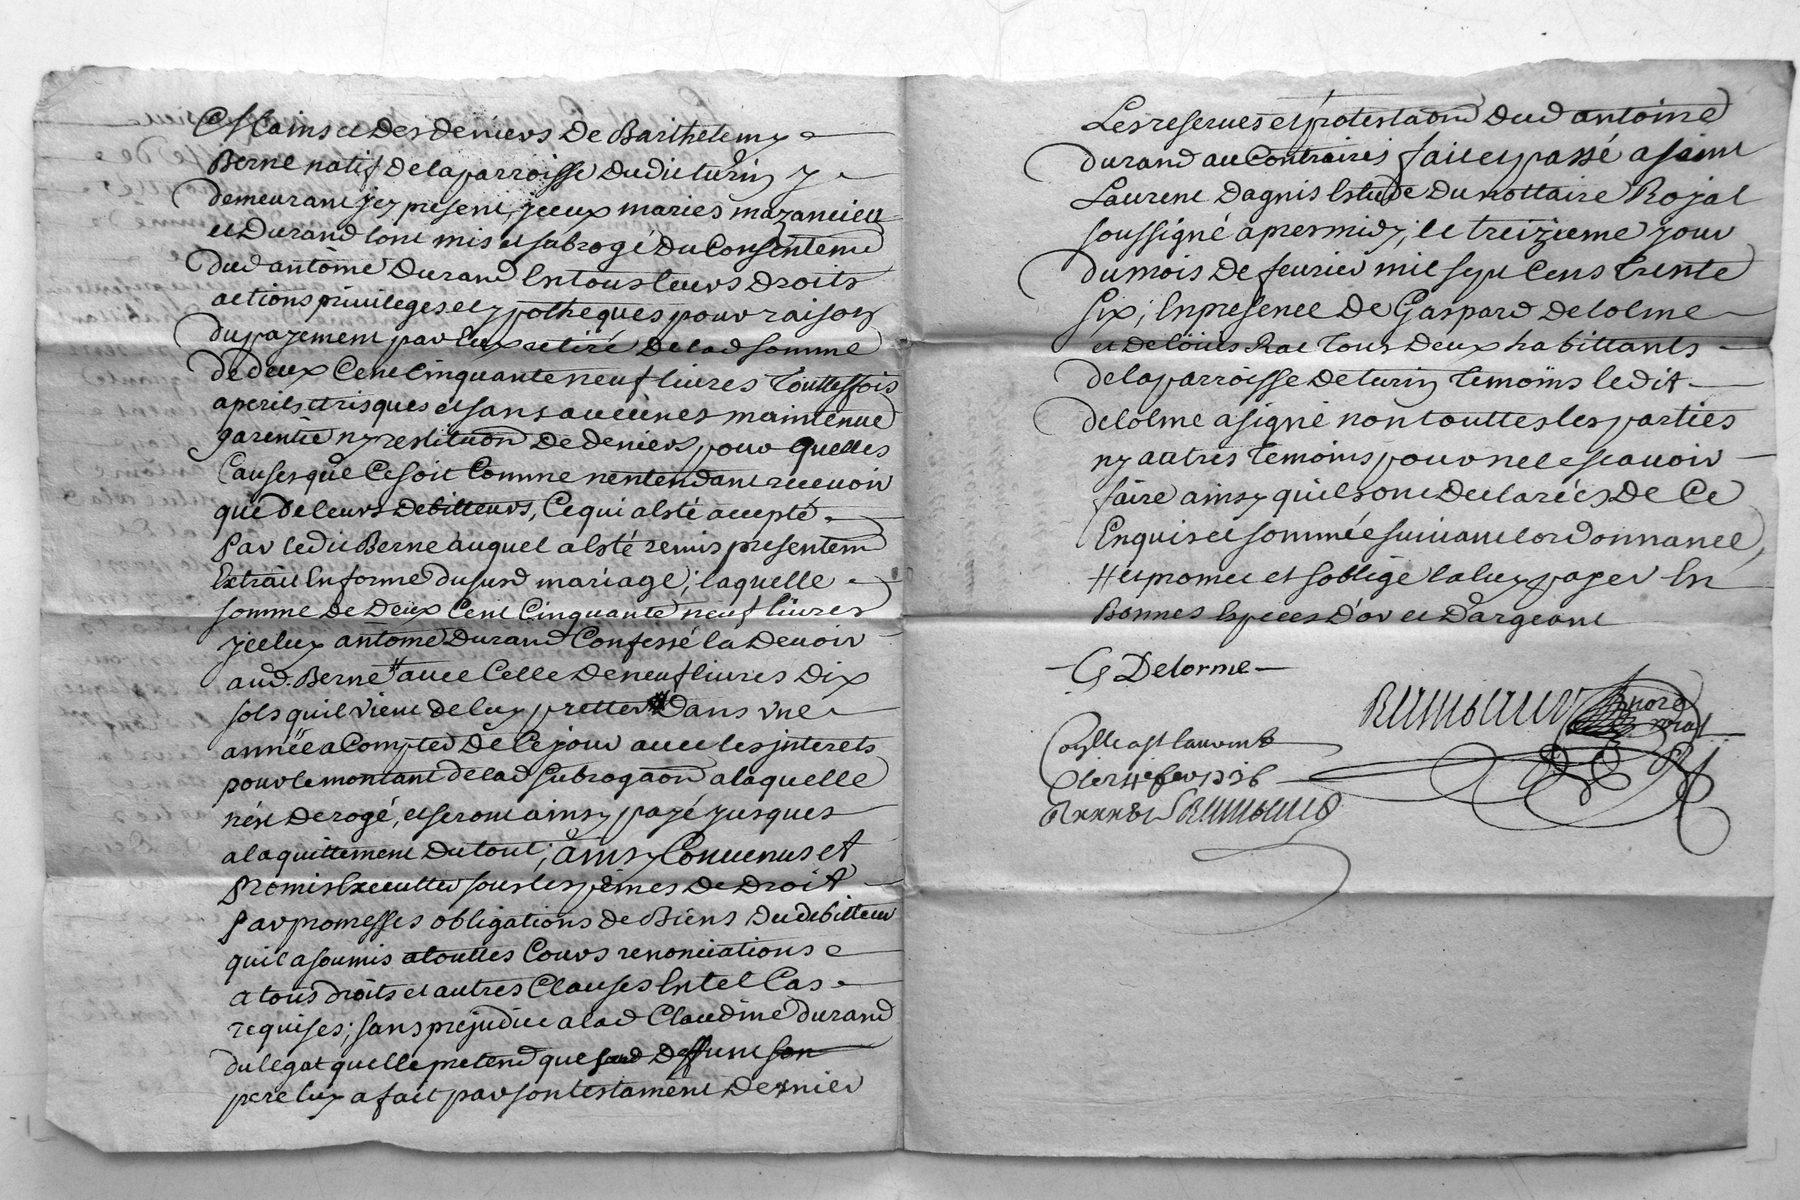 Mains et des deniers de Barthelemy
Berne natif de la parroisse dudit turin y
demeurant jcy present, jceux maries mazancieu
et Durand lont mis et subrogé du Consentemt
dud antoine Durand En tous leurs droits
actions privileges et ypotheques pour raison
du payement par Eux retiré de lad somme
de deux Cent Cinquante neuf livres Touttesfois
a perils et risques et sans aucunes maintenue
garentie ny restituaon de deniers, pour quelles
Causes que Ce soit Comme nentendant recevoir
que de leurs debitteurs, Ce qui a Esté accepté
par ledit Berne auquel a Esté remis presentemt
Extrait En forme dususd mariage; laquelle
somme de deux Cent Cinquante neuf livres
jceluy antoine Durand Confessé la Devoir
aud. Berne # avec Celle de neuf livres dix
sols quil vient de luy pretter # dans une
année a Compter de Ce jour avec les jnterets
pour le montant de lad subrogaon a laquelle
nest derogé, et seront ainsy payé jusques
a laquittement du tout; ainsy Convenus et
promis Executter sous les peines de droit
par promesses obligations de Biens du debitteur
quil a soumis a touttes Cours renonciations
a tous droits et autres Clauses En tel Cas
requises; sans prejudice a lad Claudine durand
du legat quelle pretend que sond deffunt son
pere luy a fait par son testament dernier
Les reserves et protestaons dud antoine
durand au Contraires fait et passé a saint
Laurent dagnis Estude du nottaire Royal
soussigné apres midy, le treizieme jour
du mois de fevrier mil sept Cens trente
six, En presence de Gaspard delolme
et de loüis Rat Tous deux habittants
de la parroisse de turin temoins ledit
delolme a signé non touttes les parties
ny autres temoins pour ne le scavoir
faire ainsy quils ont declarées de Ce
Enquis et sommée suivant lordonnance,
# et promet et soblige la luy payer En
Bonnes Especes d'or et d'argeant
G Delorme